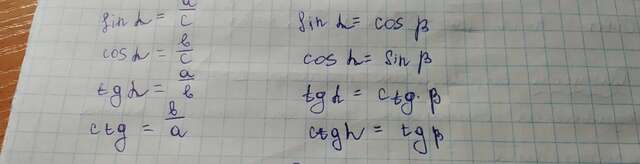 sin α = a/c sin α = cos β
cos α = b/c cos α = sin β
tg α = a/b tg α = ctg β
ctg = b/a ctg α = tg β